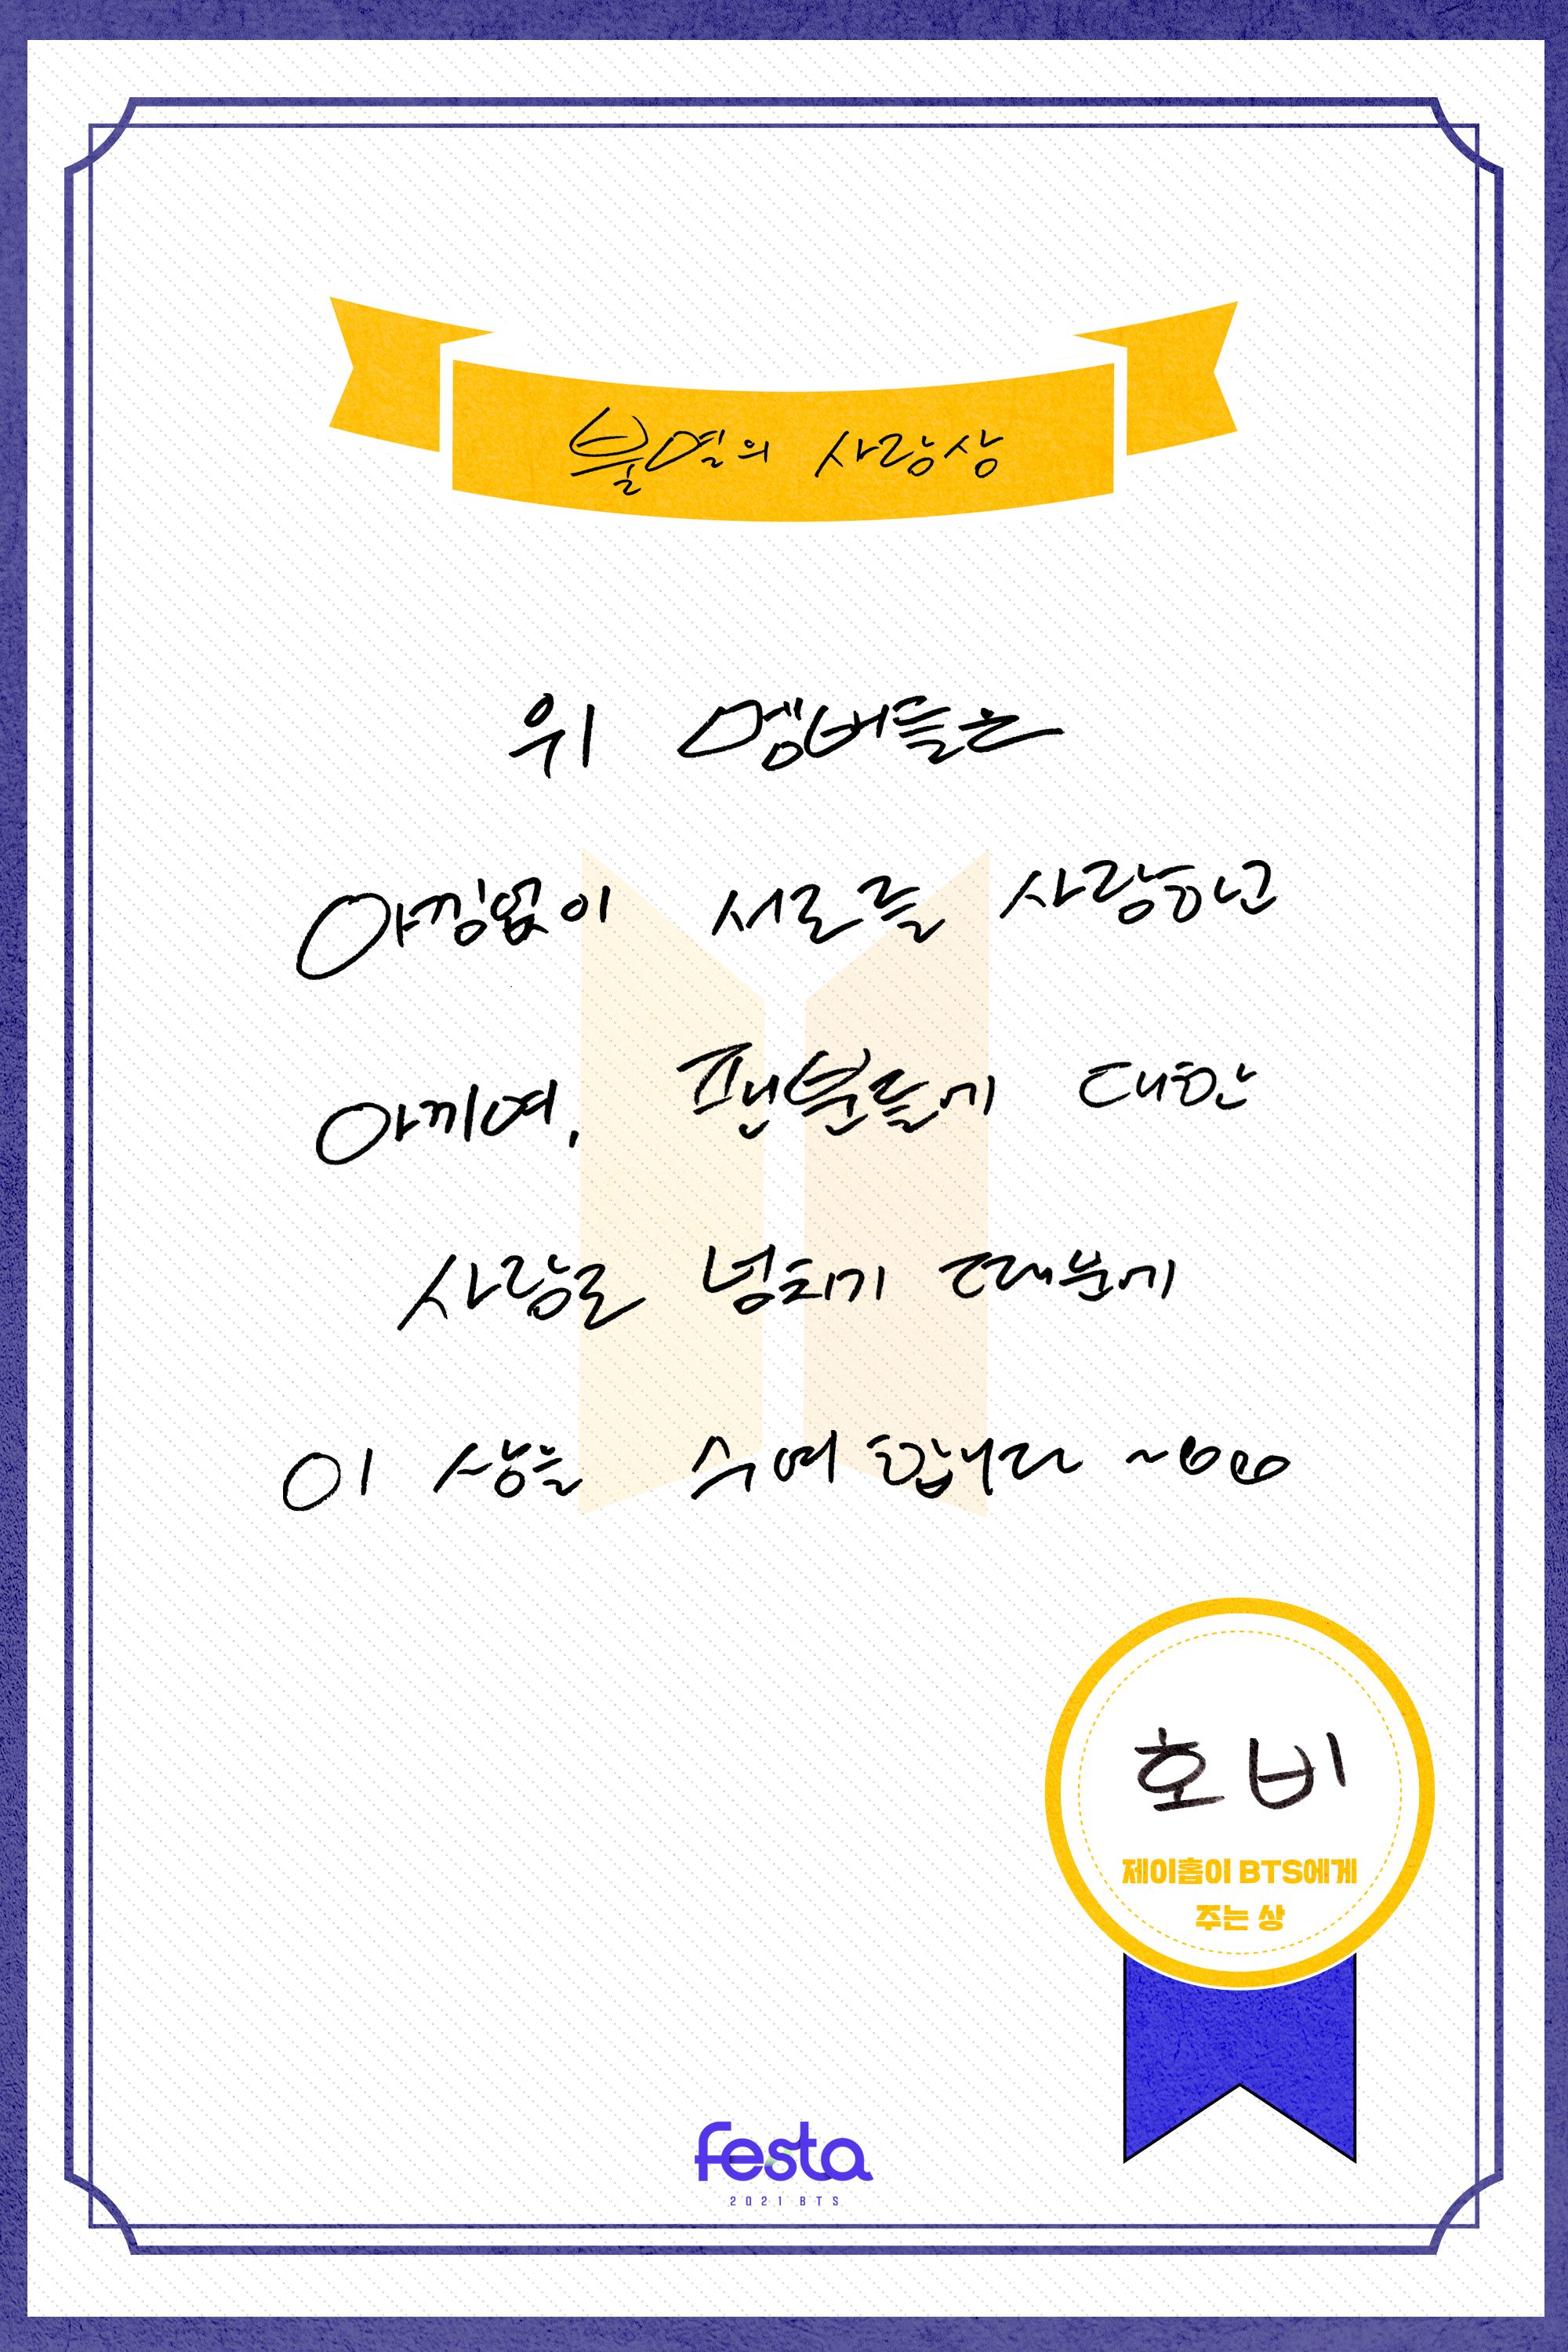 불멸의 사랑상
위 멤버들은
아낌없이 서로를 사랑하고
아끼여, 팬분들에 대한
사랑로 넘치기 때문에
이 상을 수여 합니다 ~
호비
제이홉이 BTS에게
주는 상
festa
2021 BTS